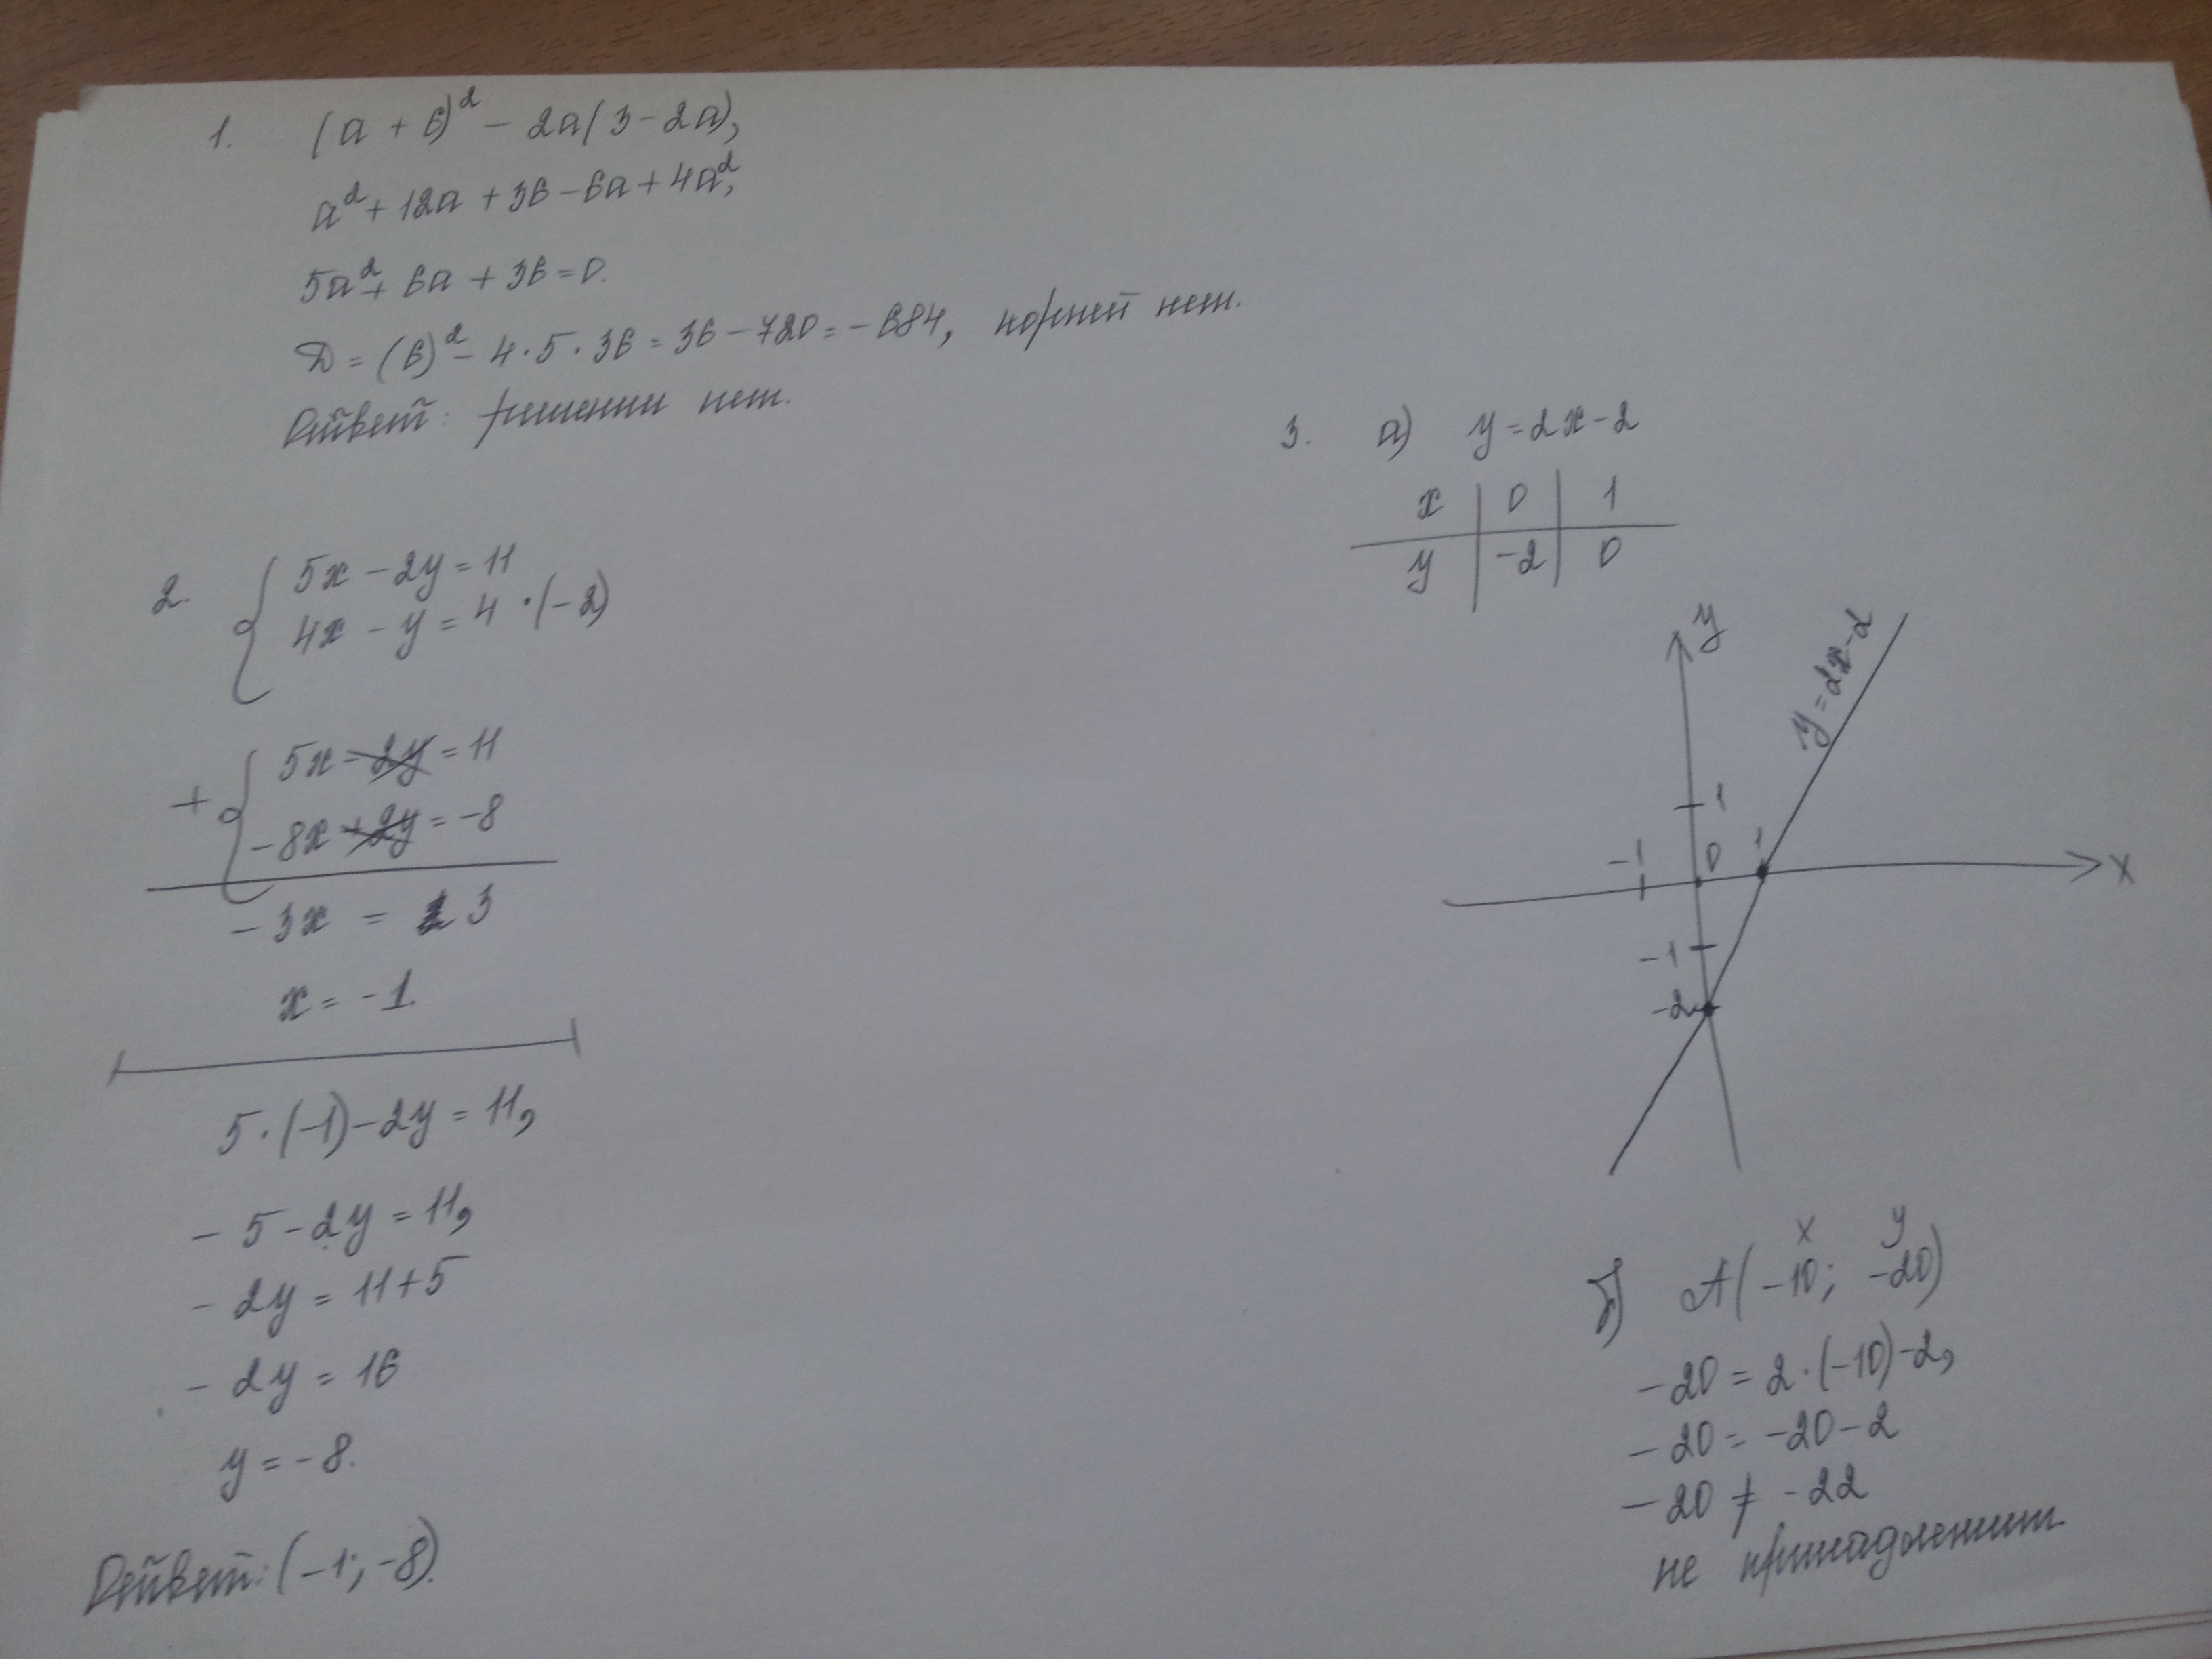 1. (a + 6)² − 2a(3 − 2a),
a² + 12a + 36 − 6a + 4a²,
5a² + 6a + 36 = 0.
D = (6)² − 4·5·36 = 36 − 720 = −684, корней нет.
Ответ: решении нет.
2. 5x − 2y = 11
4x − y = 4 ·(−2)
+ 5x − 2y = 11
−8x + 2y = −8
−3x = 3
x = −1.
5·(−1) − 2y = 11,
− 5 − 2y = 11,
− 2y = 11 + 5
− 2y = 16
y = −8.
Ответ: (−1; −8).
3. а) y = 2x − 2
x | 0 | 1
y | −2 | 0
y
y = 2x − 2
1
−1 0 1 x
−1
−2
x y
б) A(−10; −20)
−20 = 2·(−10) − 2,
−20 = −20 − 2
−20 ≠ −22
не принадлежит